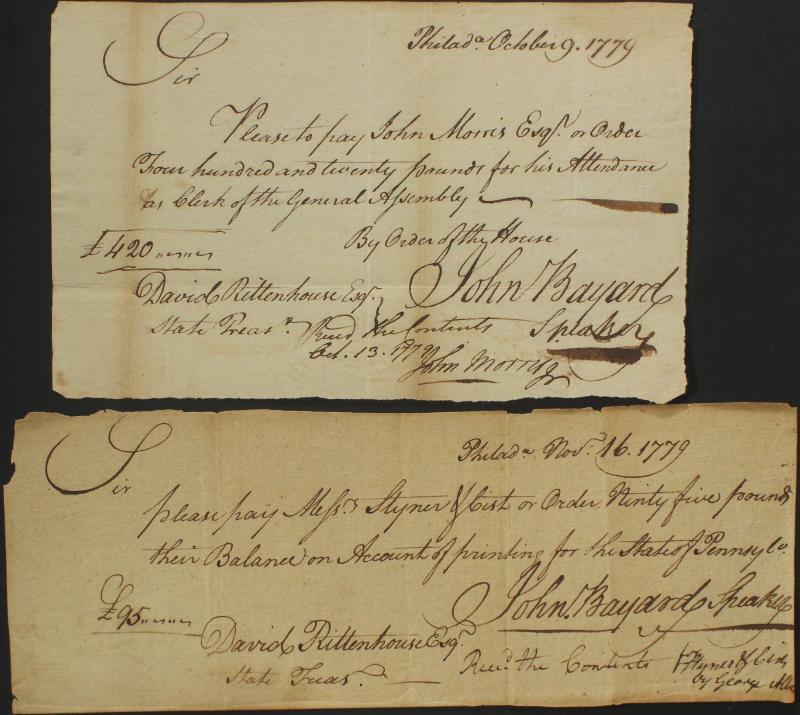 Philada. October 9. 1779
Sir
Please to pay John Morris Esqr. or Order
Four hundred and twenty pounds for his Attendance
as Clerk of the General Assembly
By Order of the House
£420
John Bayard
Speaker
David Rittenhouse Esqr.
State Treasr.
Recd. the Contents
Oct. 13. 1779
John Morris Jr
Philada. Novr. 16. 1779
Sir
please pay Messrs Styner & Cist or Order Ninty five pounds
their Balance on Account of printing for the State of Pennsyla.
£95
John Bayard Speaker
David Rittenhouse Esqr.
State Treasr.
Recd. the Contents
Styner & Cist
by George